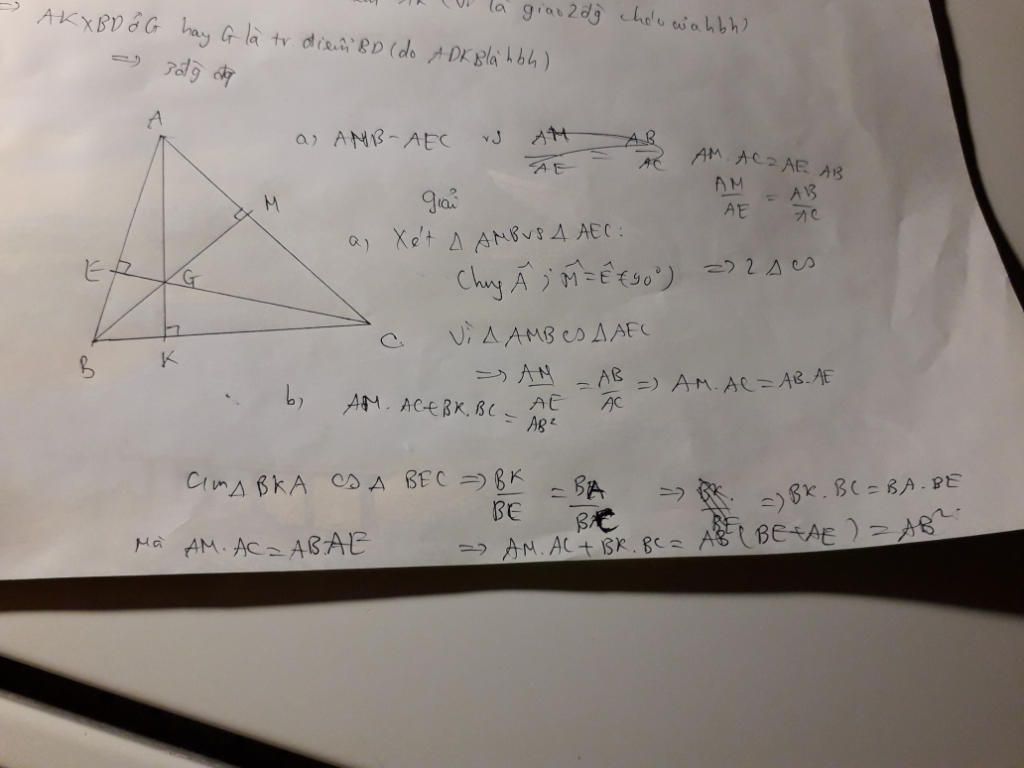 (vì là giao 2 đg chéo của hbh)
AK x BD ở G hay G là tr điểm BD (do ADKB là hbh)
=> 3 đg
A
M
E
G
B
K
C
a) AMB ~ AEC vs AM/AE = AB/AC AM. AC = AE. AB
AM/AE = AB/AC
giải
a, Xét Δ AMB vs Δ AEC:
Chung Â ; M̂ = Ê (90°) => 2 Δ ∽
Vì Δ AMB ∽ Δ AEC
=> AM/AE = AB/AC => AM. AC = AB. AE
b, AM. AC + BK. BC = AB²
Cm Δ BKA ∽ Δ BEC => BK/BE = BA/BC => BK. BC = BA. BE
Mà AM. AC = AB. AE => AM. AC + BK. BC = AB (BE + AE) = AB²